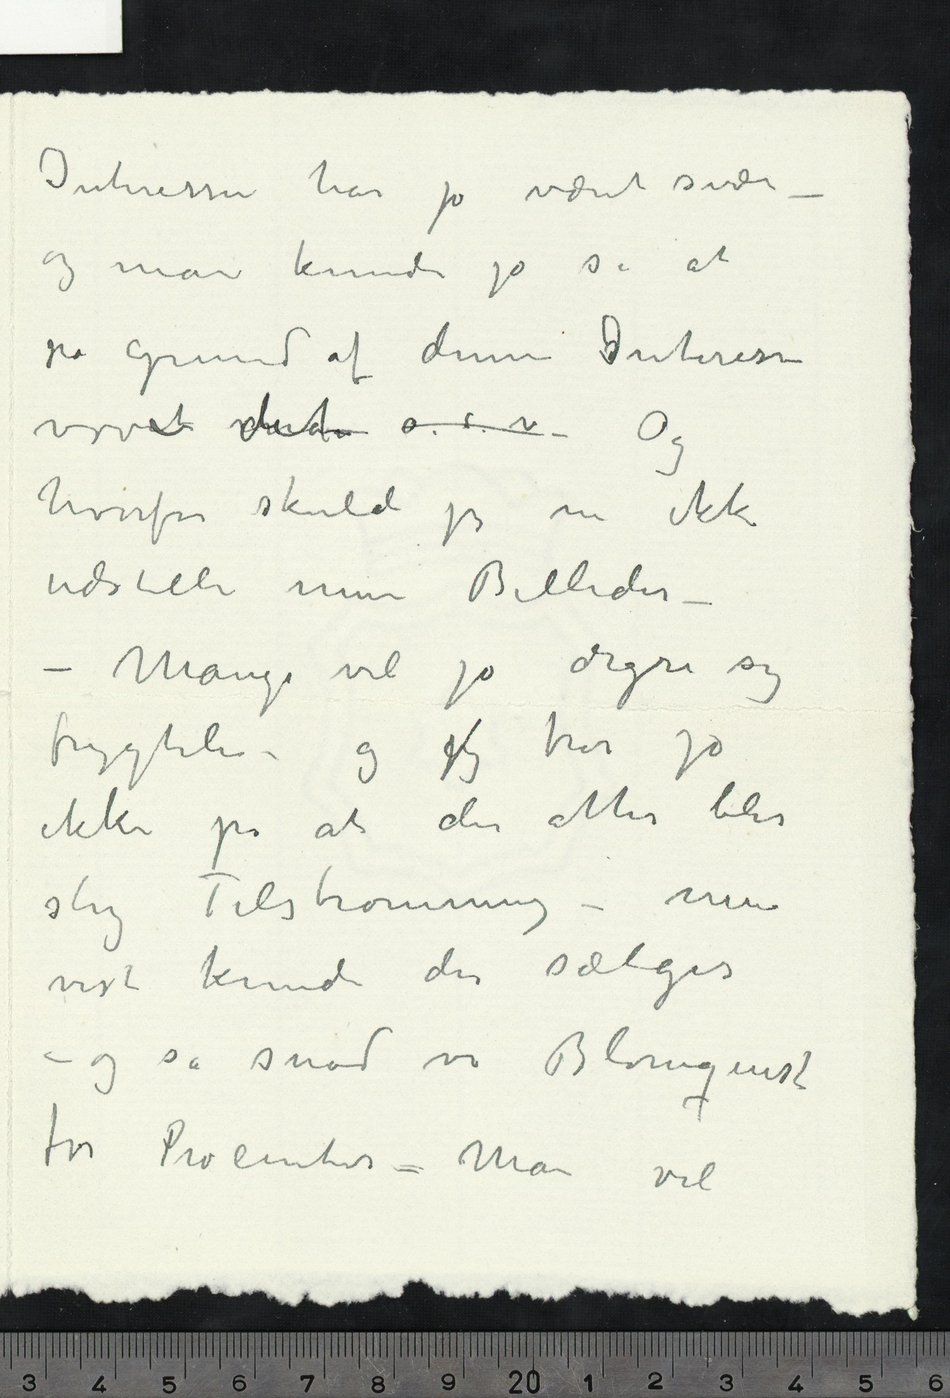 Interessen har jo været svær –
og man kunde jo sa at
pa Grund af denne Interesse
o. s. v. – Og
hvorfor skulde jeg nu ikke
udstille mine Billeder –
– Mange vil jo ærgre sig
frygteli – og jeg tror jo
ikke pa at der atter blir
slig Tilstrømning – men
vist kunde der sælges
– og sa snød vi Blomquist
for Procenter – Man vil
3 4 5 6 7 8 9 20 1 2 3 4 5 6